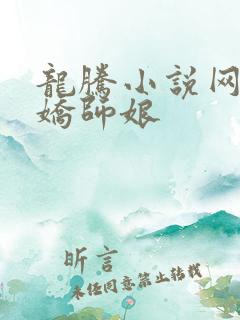 龍騰小說网
嬌師娘
昕言
未经同意禁止转载